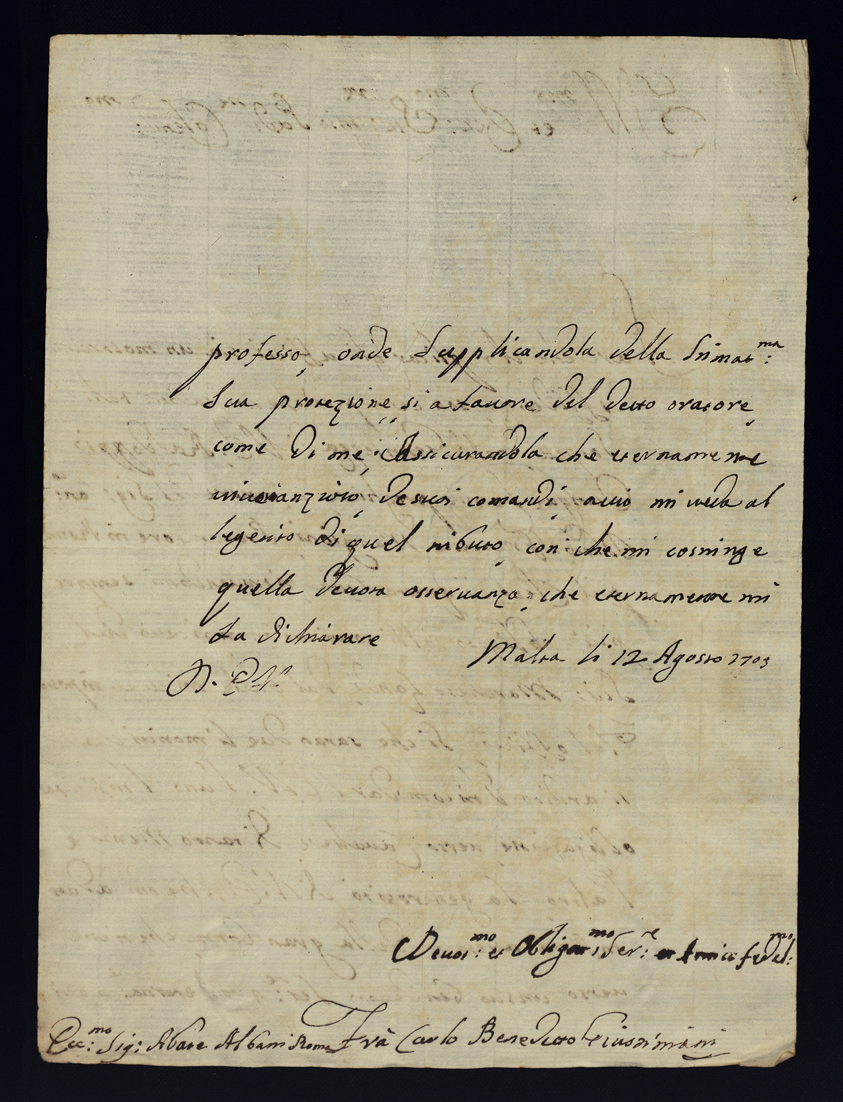 professo, onde supplicandola della stimat.ma
sua protezione, si a favore del detto oratore,
come di me, Assicurandola che eternamente
de suoi comandi, acciò mi veda al
di quel tributo, con che mi costringe
quella devota osservanza, che eternamente mi
fa dichiarare
Malta li 12 Agosto 1703
Devot.mo et Obligat.mo Ser.re et Amico fedel.mo
Ecc.mo Sig: Abate Albani Roma Frà Carlo Benedetto Giustiniani